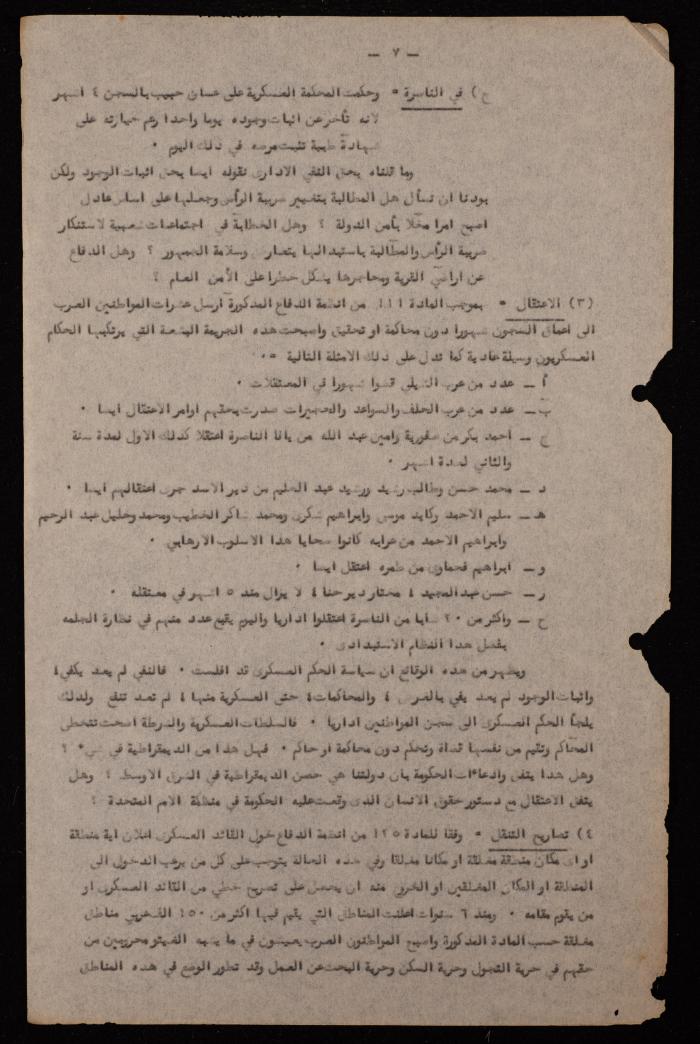 — ٧ —
ج) في الناصرة = وحكمت المحكمة العسكرية على غسان حبيب بالسجن ٤ اشهر
لانه تأخر عن اثبات وجوده يوما واحدا رغم حيازته على
شهادة طبية تثبت مرضه في ذلك اليوم .
وما قلناه بحق النفي الاداري نقوله ايضا بحق اثبات الوجود ولكن
بودنا ان نسأل هل المطالبة بتغيير ضريبة الرأس وجعلها على اساس عادل
اصبح امرا مخلا بأمن الدولة ؟ وهل الخطابة في اجتماعات شعبية لاستنكار
ضريبة الرأس والمطالبة باستبدالها يتعارض وسلامة الجمهور ؟ وهل الدفاع
عن اراضي القرية ومحاجرها يشكل خطرا على الأمن العام ؟
(٣) الاعتقال = بموجب المادة ١١١ من انظمة الدفاع المذكورة ارسل عشرات المواطنين العرب
الى اعماق السجون شهورا دون محاكمة او تحقيق واصبحت هذه الجريمة البشعة التي يرتكبها الحكام
العسكريون وسيلة عادية كما تدل على ذلك الامثلة التالية =.
أ ــ عدد من عرب الشبلي قضوا شهورا في المعتقلات .
ب ــ عدد من عرب الحلف والسواعد والحجيرات صدرت بحقهم اوامر الاعتقال ايضا .
ج ــ احمد بكر من صفورية وامين عبد الله من يافا الناصرة اعتقلا كذلك الاول لمدة سنة
والثاني لمدة اشهر .
د ــ محمد حسن وطالب رشيد ورشيد عبد الحليم من دير الاسد جرى اعتقالهم ايضا .
هـ ــ سليم الاحمد وكايد موسى وابراهيم شكري ومحمد شاكر الخطيب ومحمد وخليل عبد الرحيم
وابراهيم الاحمد من عرابه كانوا ضحايا هذا الاسلوب الارهابي .
و ــ ابراهيم قحماوي من طمره اعتقل ايضا .
ز ــ حسن عبد المجيد ، مختار دير حنا ، لا يزال منذ ٥ اشهر في معتقله .
ح ــ واكثر من ٢٠ شابا من الناصرة اعتقلوا اداريا واليوم يقبع عدد منهم في نظارة الجلمه
بفضل هذا النظام الاستبدادي .
ويظهر من هذه الوقائع ان سياسة الحكم العسكري قد افلست . فالنفي لم يعد يكفي ،
واثبات الوجود لم يعد يفي بالغرض ، والمحاكمات ، حتى العسكرية منها ، لم تعد تنفع ولذلك
يلجأ الحكم العسكري الى سجن المواطنين اداريا . فالسلطات العسكرية والشرطة اضحت تتخطى
المحاكم وتقيم من نفسها قضاة وتحكم دون محاكمة او حاكم . فهل هذا من الديمقراطية في شيء ؟
وهل هذا يتفق وادعاءات الحكومة بان دولتنا هي حصن الديمقراطية في الشرق الاوسط ؟ وهل
يتفق الاعتقال مع دستور حقوق الانسان الذي وقعت عليه الحكومة في منظمة الامم المتحدة ؟
٤) تصاريح التنقل = وفقا للمادة ١٢٥ من انظمة الدفاع خول القائد العسكري اعلان اية منطقة
او اي مكان منطقة مغلقة او مكانا مغلقا وفي هذه الحالة يتوجب على كل من يرغب الدخول الى
المنطقة او المكان المغلقين او الخروج منه ان يحصل على تصريح خطي من القائد العسكري او
من يقوم مقامه . ومنذ ٦ سنوات اعلنت المناطق التي يقيم فيها اكثر من ١٥٠ الف عربي مناطق
مغلقة حسب المادة المذكورة واصبح المواطنون العرب يعيشون في ما يشبه الغيتو محرومين من
حقهم في حرية التجول وحرية السكن وحرية البحث عن العمل وقد تطور الوضع في هذه المناطق